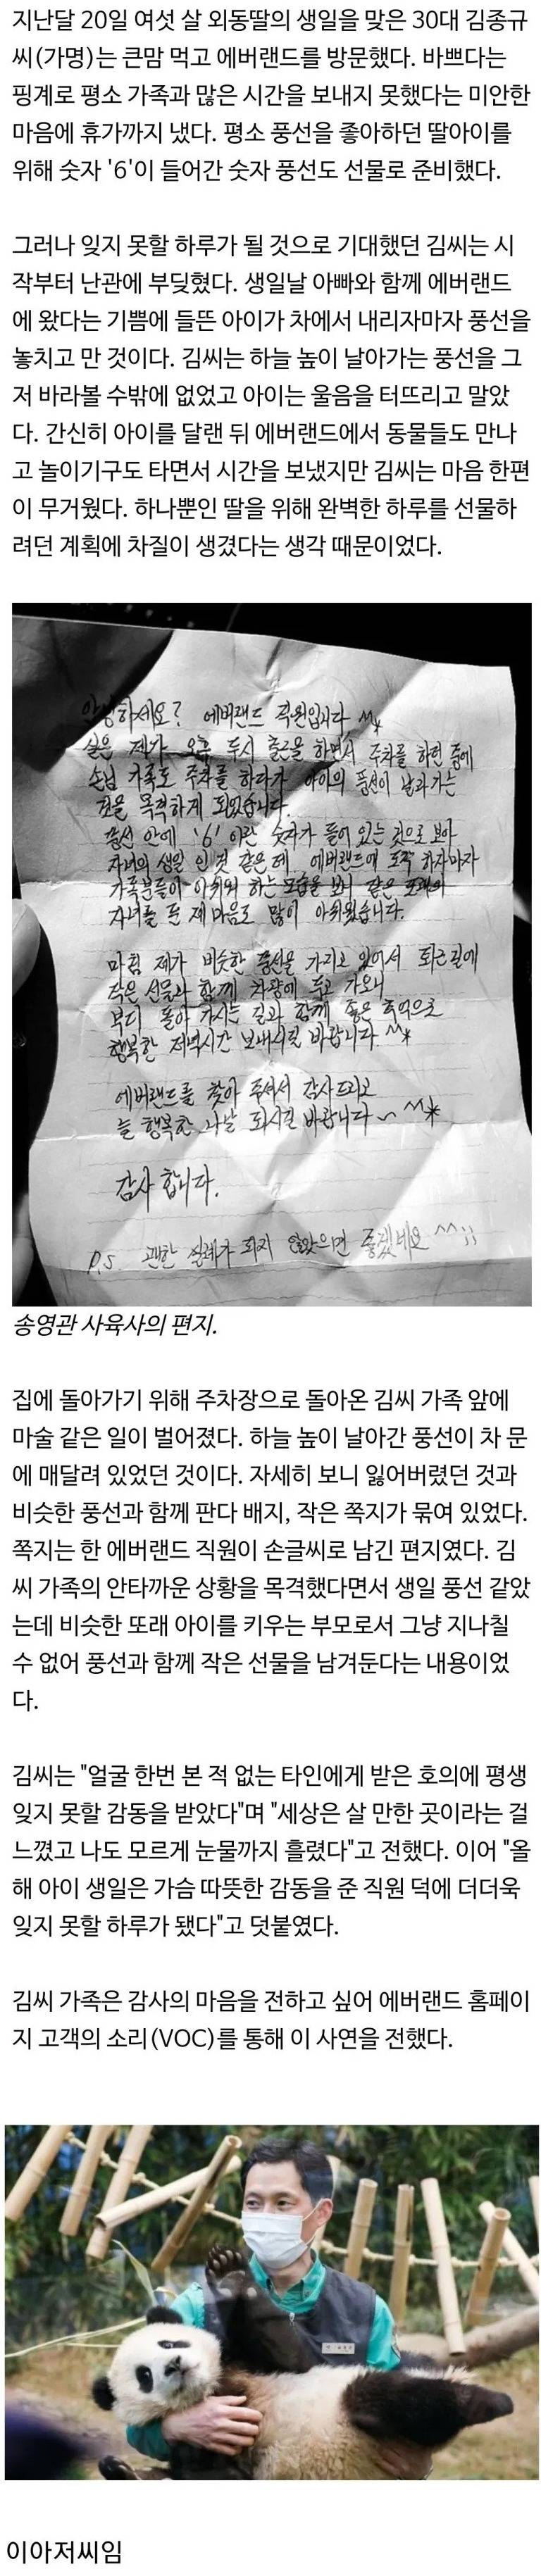 지난달 20일 여섯 살 외동딸의 생일을 맞은 30대 김종규
씨(가명)는 큰맘 먹고 에버랜드를 방문했다. 바쁘다는
핑계로 평소 가족과 많은 시간을 보내지 못했다는 미안한
마음에 휴가까지 냈다. 평소 풍선을 좋아하던 딸아이를
위해 숫자 '6'이 들어간 숫자 풍선도 선물로 준비했다.
그러나 잊지 못할 하루가 될 것으로 기대했던 김씨는 시
작부터 난관에 부딪혔다. 생일날 아빠와 함께 에버랜드
에 왔다는 기쁨에 들뜬 아이가 차에서 내리자마자 풍선을
놓치고 만 것이다. 김씨는 하늘 높이 날아가는 풍선을 그
저 바라볼 수밖에 없었고 아이는 울음을 터뜨리고 말았
다. 간신히 아이를 달랜 뒤 에버랜드에서 동물들도 만나
고 놀이기구도 타면서 시간을 보냈지만 김씨는 마음 한편
이 무거웠다. 하나뿐인 딸을 위해 완벽한 하루를 선물하
려던 계획에 차질이 생겼다는 생각 때문이었다.
안녕하세요? 에버랜드 직원입니다 ^^*
실은 제가 오후 두시 출근을 하면서 주차를 하던 중에
손님 가족도 주차를 하다가 아이의 풍선이 날라가는
것을 목격하게 되었습니다.
풍선 안에 '6' 이란 숫자가 들어 있는 것으로 보아
자녀의 생일 인것 같은데 에버랜드에 도착 하자마자
가족분들이 아쉬워 하는 모습을 보니 같은 또래의
자녀를 둔 제 마음도 많이 아쉬웠습니다.
마침 제가 비슷한 풍선을 가지고 있어서 퇴근길에
작은 선물과 함께 차량에 두고 가오니
부디 돌아 가시는 길과 함께 좋은 추억으로
행복한 저녁시간 보내시길 바랍니다. ^^*
에버랜드를 찾아 주셔서 감사드리고
늘 행복한 나날 되시길 바랍니다~ ^^*
감사 합니다.
P.S. 괜한 실례가 되지 않았으면 좋겠네요 ^^;;
송영관 사육사의 편지.
집에 돌아가기 위해 주차장으로 돌아온 김씨 가족 앞에
마술 같은 일이 벌어졌다. 하늘 높이 날아간 풍선이 차 문
에 매달려 있었던 것이다. 자세히 보니 잃어버렸던 것과
비슷한 풍선과 함께 판다 배지, 작은 쪽지가 묶여 있었다.
쪽지는 한 에버랜드 직원이 손글씨로 남긴 편지였다. 김
씨 가족의 안타까운 상황을 목격했다면서 생일 풍선 같았
는데 비슷한 또래 아이를 키우는 부모로서 그냥 지나칠
수 없어 풍선과 함께 작은 선물을 남겨둔다는 내용이었
다.
김씨는 "얼굴 한번 본 적 없는 타인에게 받은 호의에 평생
잊지 못할 감동을 받았다"며 "세상은 살 만한 곳이라는 걸
느꼈고 나도 모르게 눈물까지 흘렸다"고 전했다. 이어 "올
해 아이 생일은 가슴 따뜻한 감동을 준 직원 덕에 더더욱
잊지 못할 하루가 됐다"고 덧붙였다.
김씨 가족은 감사의 마음을 전하고 싶어 에버랜드 홈페이
지 고객의 소리(VOC)를 통해 이 사연을 전했다.
이아저씨임